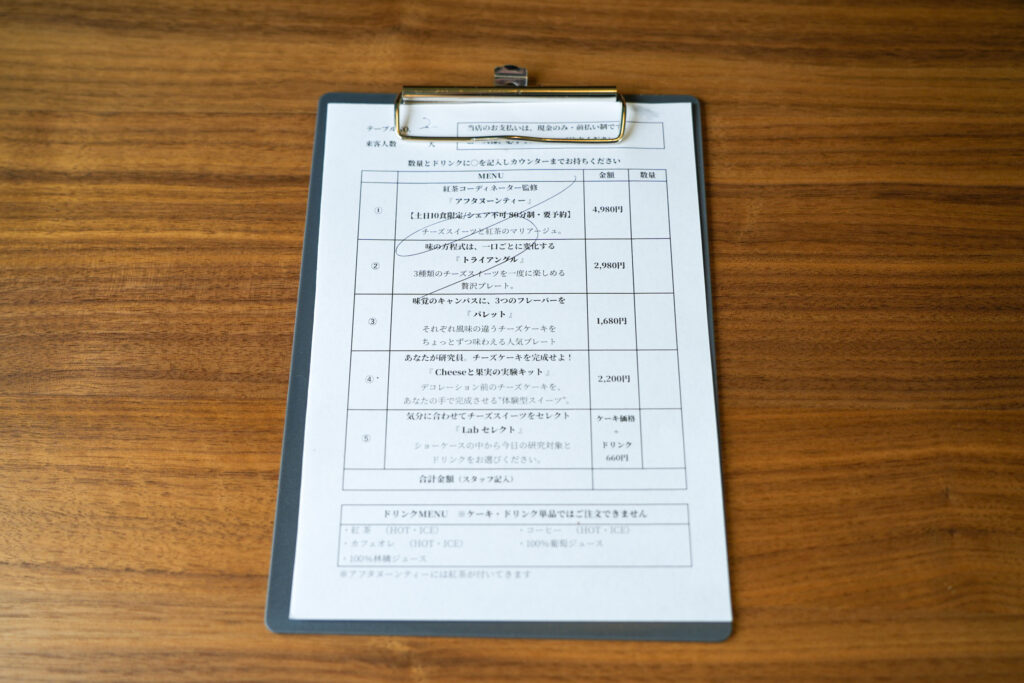 テーブル 2
当店のお支払いは、現金のみ・前払い制で
来客人数 人
数量とドリンクに○を記入しカウンターまでお持ちください
MENU 金額 数量
① 紅茶コーディネーター監修
『 アフタヌーンティー 』
【土日10食限定/シェア不可 80分制・要予約】
チーズスイーツと紅茶のマリアージュ。
4,980円
② 味の方程式は、一口ごとに変化する
『 トライアングル 』
3種類のチーズスイーツを一度に楽しめる
贅沢プレート。
2,980円
③ 味覚のキャンバスに、3つのフレーバーを
『 パレット 』
それぞれ風味の違うチーズケーキを
ちょっとずつ味わえる人気プレート
1,680円
④ あなたが研究員。チーズケーキを完成せよ!
『 Cheeseと果実の実験キット 』
デコレーション前のチーズケーキを、
あなたの手で完成させる"体験型スイーツ"。
2,200円
⑤ 気分に合わせてチーズスイーツをセレクト
『 Lab セレクト 』
ショーケースの中から今日の研究対象と
ドリンクをお選びください。
ケーキ価格
+
ドリンク
660円
合計金額(スタッフ記入)
ドリンクMENU ※ケーキ・ドリンク単品ではご注文できません
・紅 茶 (HOT・ICE) ・コーヒー (HOT・ICE)
・カフェオレ (HOT・ICE) ・100%葡萄ジュース
・100%林檎ジュース
※アフタヌーンティーには紅茶が付いてきます